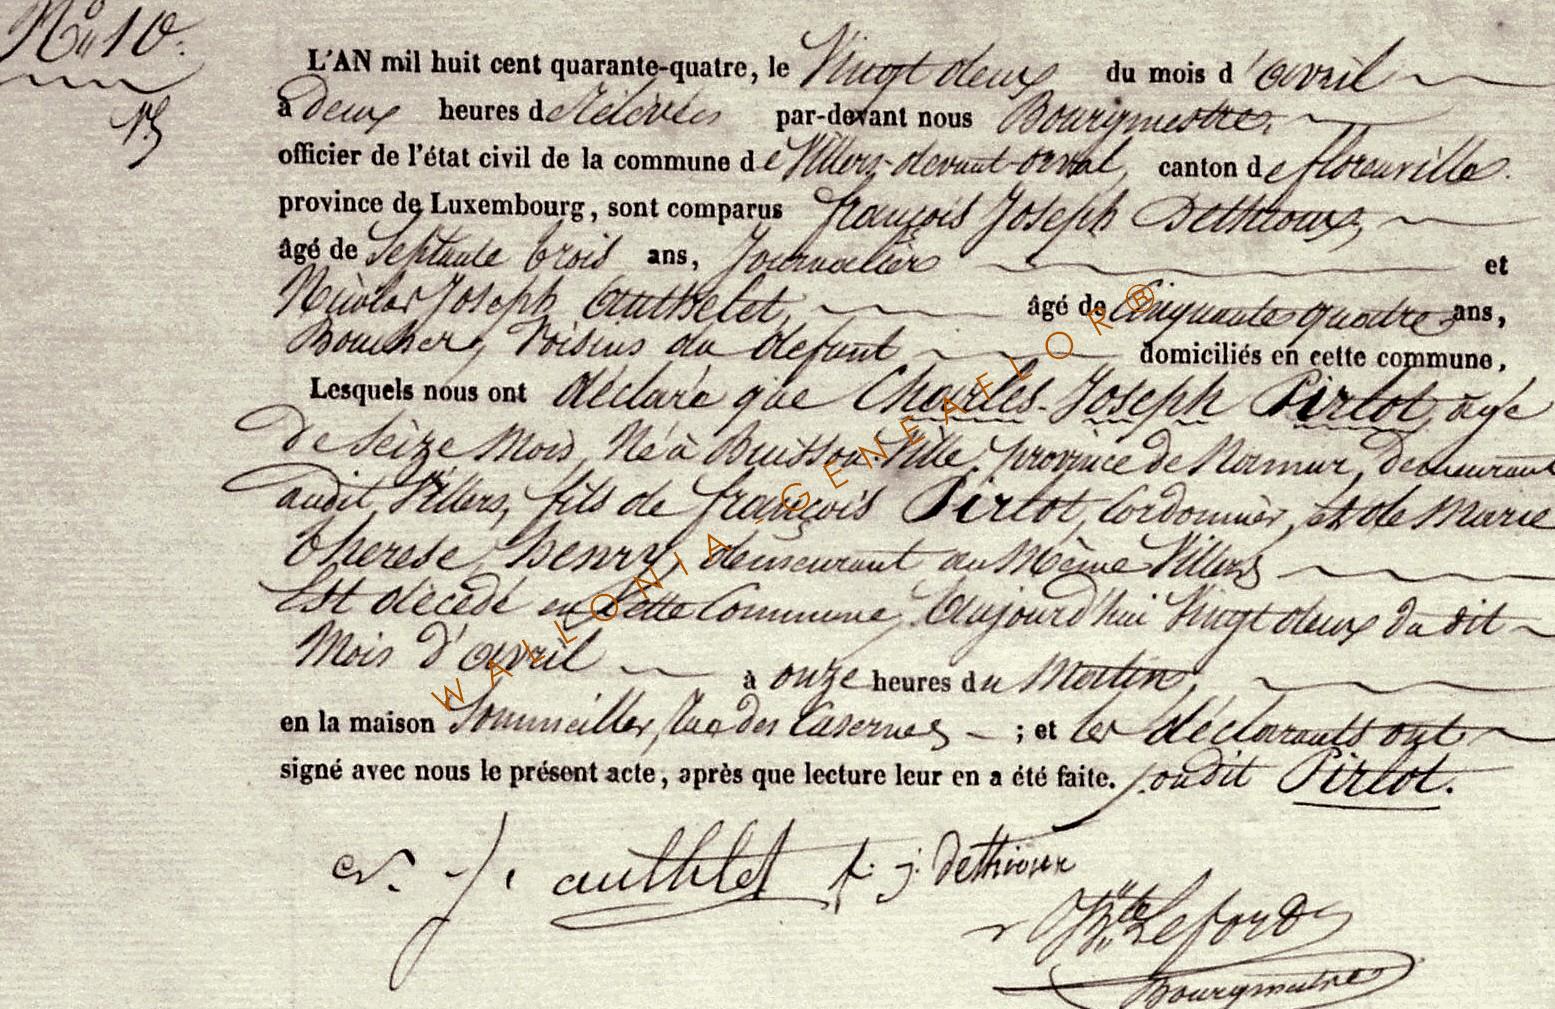 N° 10.
L'AN mil huit cent quarante-quatre, le Vingt deux du mois d'avril
à deux heures de Rélévées par-devant nous Bourgmestre,
officier de l'état civil de la commune de Villers-devant-orval, canton de florenville.
province de Luxembourg, sont comparus françois Joseph Dethioux,
âgé de Septante trois ans, Journalier et
Nicolas Joseph Authelet, âgé de Cinquante quatre ans,
Boucher, Voisins du defunt domiciliés en cette commune,
Lesquels nous ont déclaré que Charles-Joseph Pirlot, agé
de Seize Mois, Né à Buisson-Ville, province de Namur, demeurant
audit Villers, fils de françois Pirlot, Cordonnier, et de Marie
therese henry, demeurant au Même Villers
Est décédé en Cette Commune, Aujourd'hui Vingt deux du dit
Mois d'avril à onze heures du Matin,
en la maison Sommeiller, Rue des Casernes ; et les déclarants ont
signé avec nous le présent acte, après que lecture leur en a été faite. soudit Pirlot.
N. J. authlet f. j. dethioux
Leford
Bourgmestre
WALLONIA-GENEAFLOR®